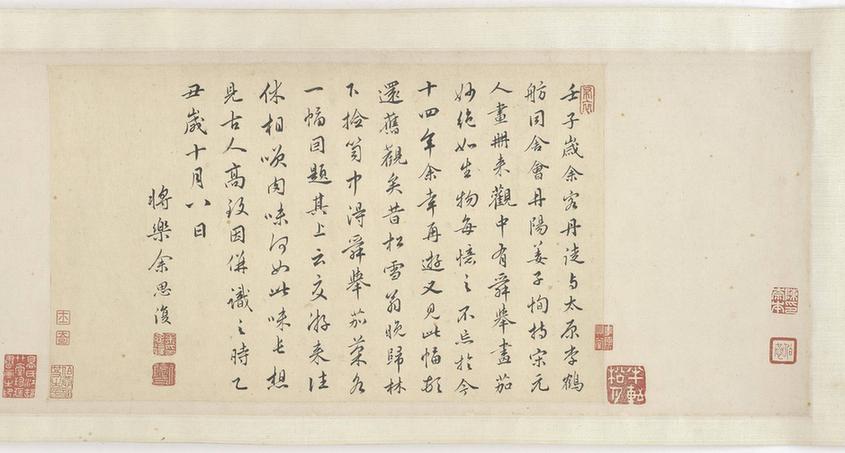 壬子歲余客丹徒与太原李鶴
舫同舍會丹陽姜子恂持宋元
人畫冊来觀中有舜舉畫茄
妙絶如生物每憶之不忘於今
十四年余幸再遊又見此幅頓
還舊觀矣昔松雪翁晚歸林
下撿笥中得舜舉茄菜各
一幅因題其上云交游来往
休相笑肉味何如此味長想
見古人高致因併識之時乙
丑歲十月八日
將樂余思復